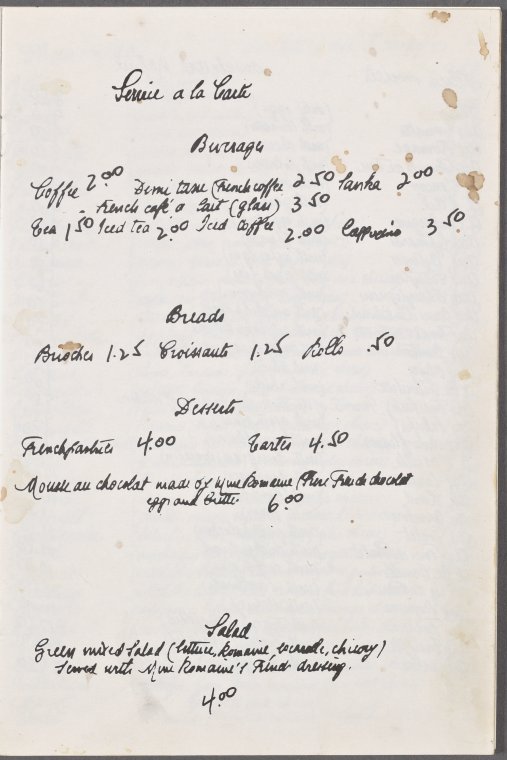 Service a la Carte
Beverages
Coffee 2.00 Demi tasse (French coffee 2.50 Sanka 2.00
French café o lait (glass) 3.50
Tea 1.50 Iced tea 2.00 Iced Coffee 2.00 Cappucino 3.50
Breads
Brioches 1.25 Croissants 1.25 Rolls .50
Desserts
French pastries 4.00 Tartes 4.50
Mousse au chocolat made of Mme Romaine (Pure French chocolat
eggs and butter 6.00
Salad
Green mixed Salad (lettuce, Romaine, escarole, chicory)
served with Mme Romaine's French dressing.
4.00